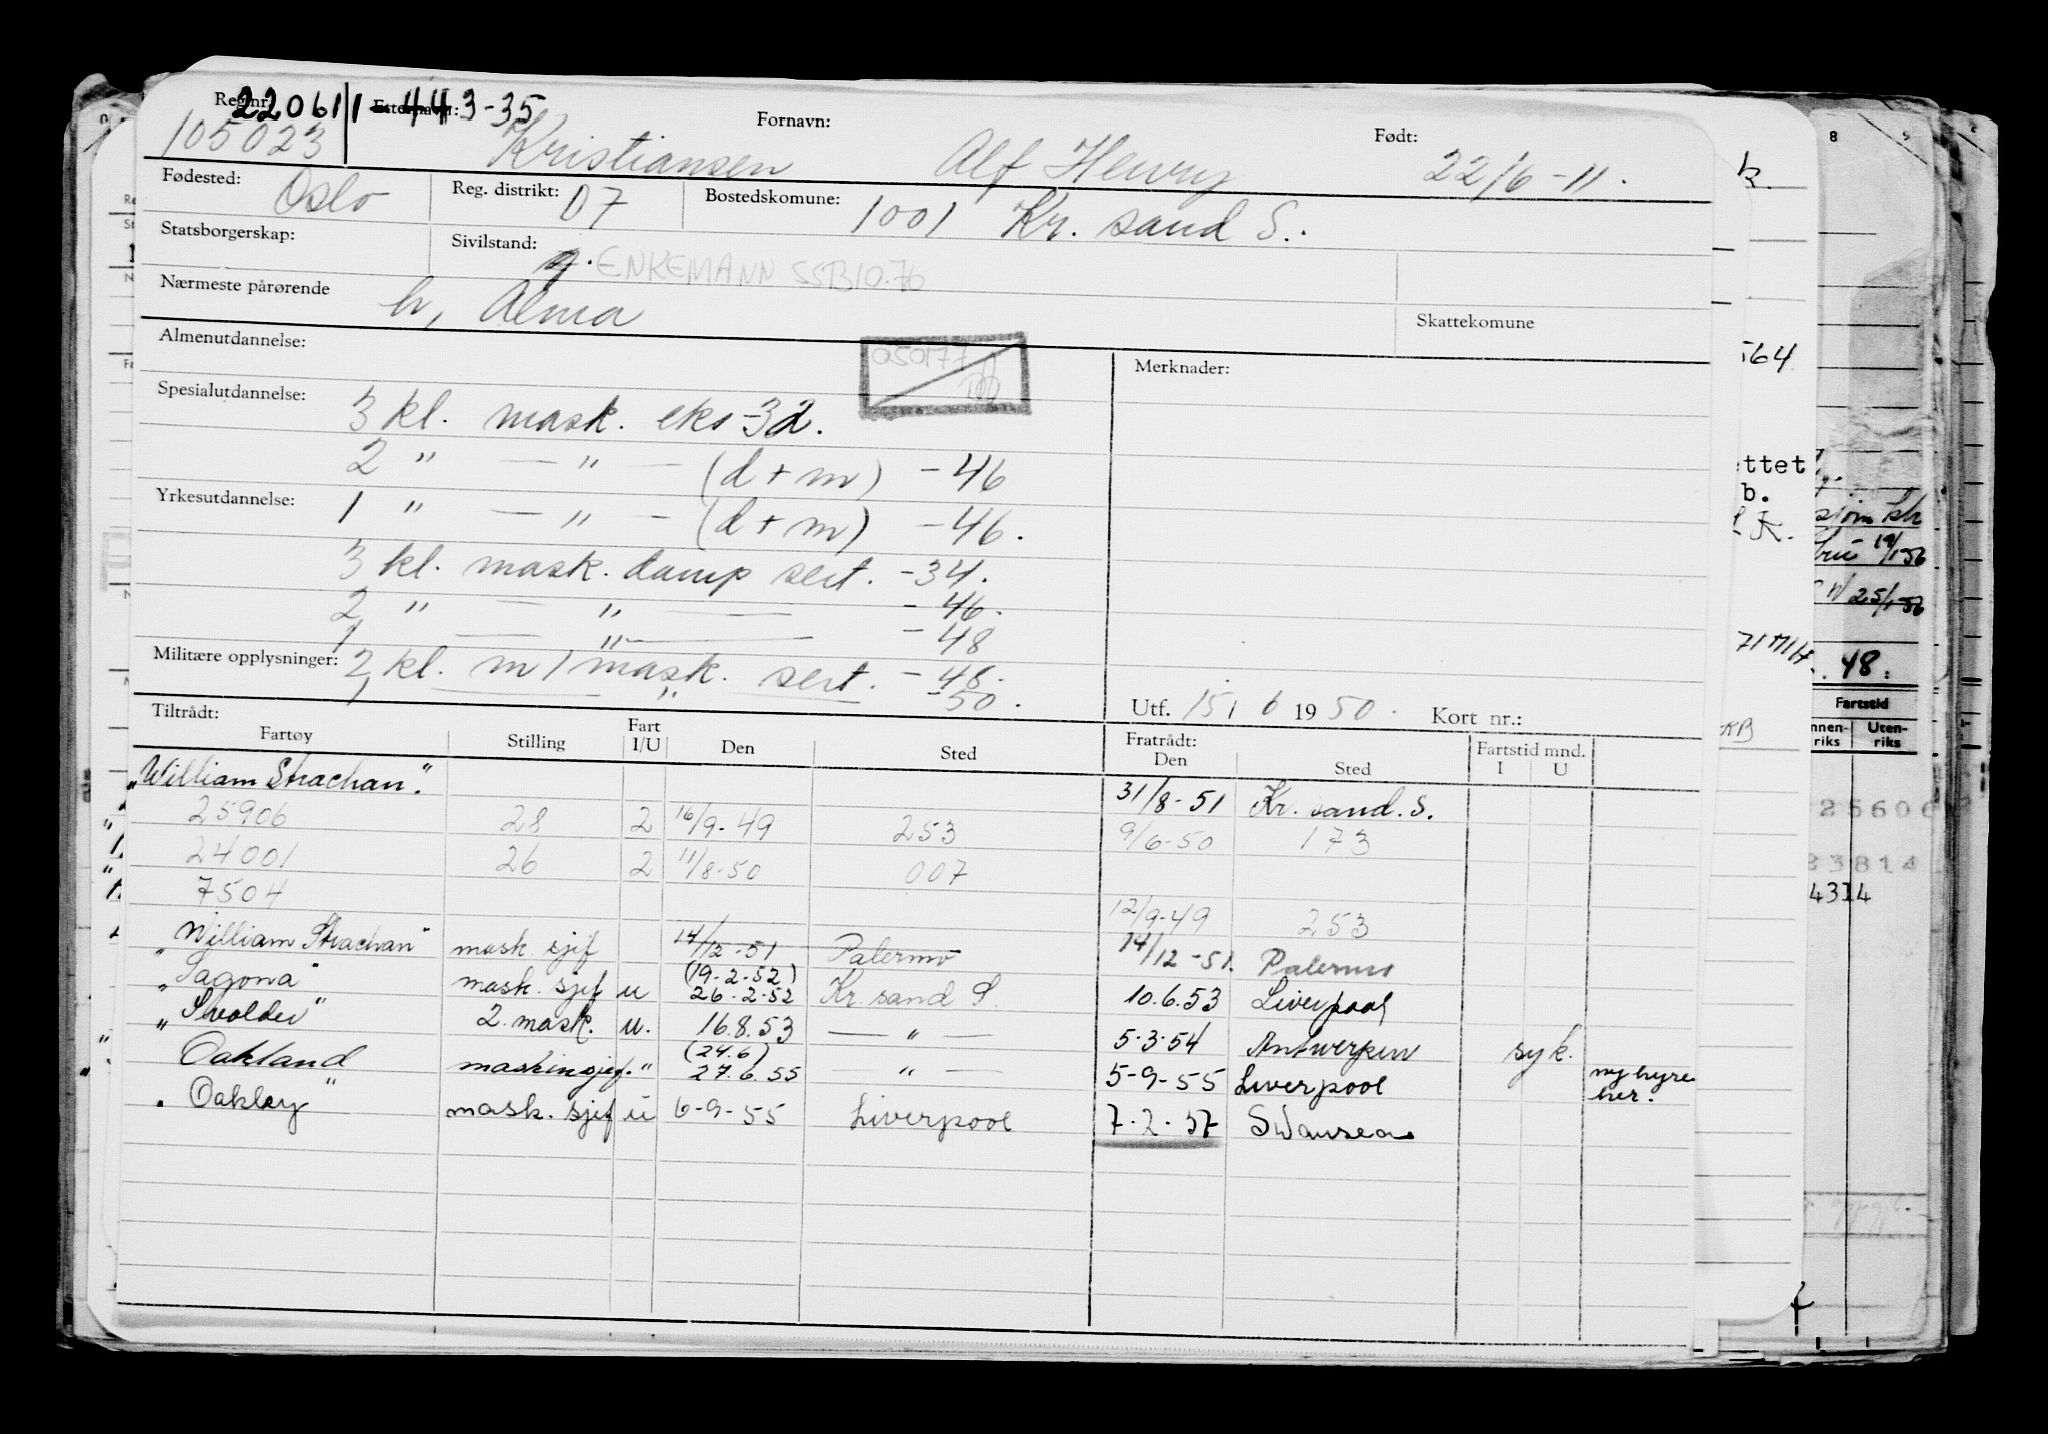 Reg.nr. 220611-443-35 Etternavn: Fornavn: Født:
105023 Kristiansen Alf Henry 22/6-11.
Fødested: Oslo Reg. distrikt: 07 Bostedskomune: 1001 Kr. sand S.
Statsborgerskap: Sivilstand: g. ENKEMANN SSB 10.76
Nærmeste pårørende h, Alma Skattekomune
Almenutdannelse: 050177 Merknader:
Spesialutdannelse: 3 kl. mask. eks -32.
2 " — " — (d+m) -46
Yrkesutdannelse: 1 " — " — (d+m) -46.
3 kl. mask. damp sert. -34.
2 " — " — -46.
1 — " — -48
Militære opplysninger: 2 kl. m/mask. sert. -48.
1 — " — -50.
Utf. 15/6 1950. Kort nr.:
Tiltrådt: Fratrådt: Fartstid mnd.
Fartøy Stilling Fart I/U Den Sted Den Sted I U
"William Strachan". 31/8-51 Kr. sand. S.
25906 28 2 16/9-49 253 9/6-50 173
24001 26 2 11/8-50 007
7504 12/9-49 253
"William Strachan" mask. sjef 14/12-51 Palermo 14/12-51. Palermo
"Sagona" mask. sjef u (19.2.52) 26.2.52 Kr. sand S. 10.6.53 Liverpool
"Svolder" 2. mask. u. 16.8.53 — " — 5.3.54 Antwerpen syk.
"Oakland maskinsjef. " (24.6) 27.6.55 — " — 5-9-55 Liverpool ny hyre her.
"Oakley" mask. sjef u 6-9-55 Liverpool 7.2.57 Swansea
8
564
ettet
b.
48.
Fartstid
Uten-
riks riks
25606
23814
4314